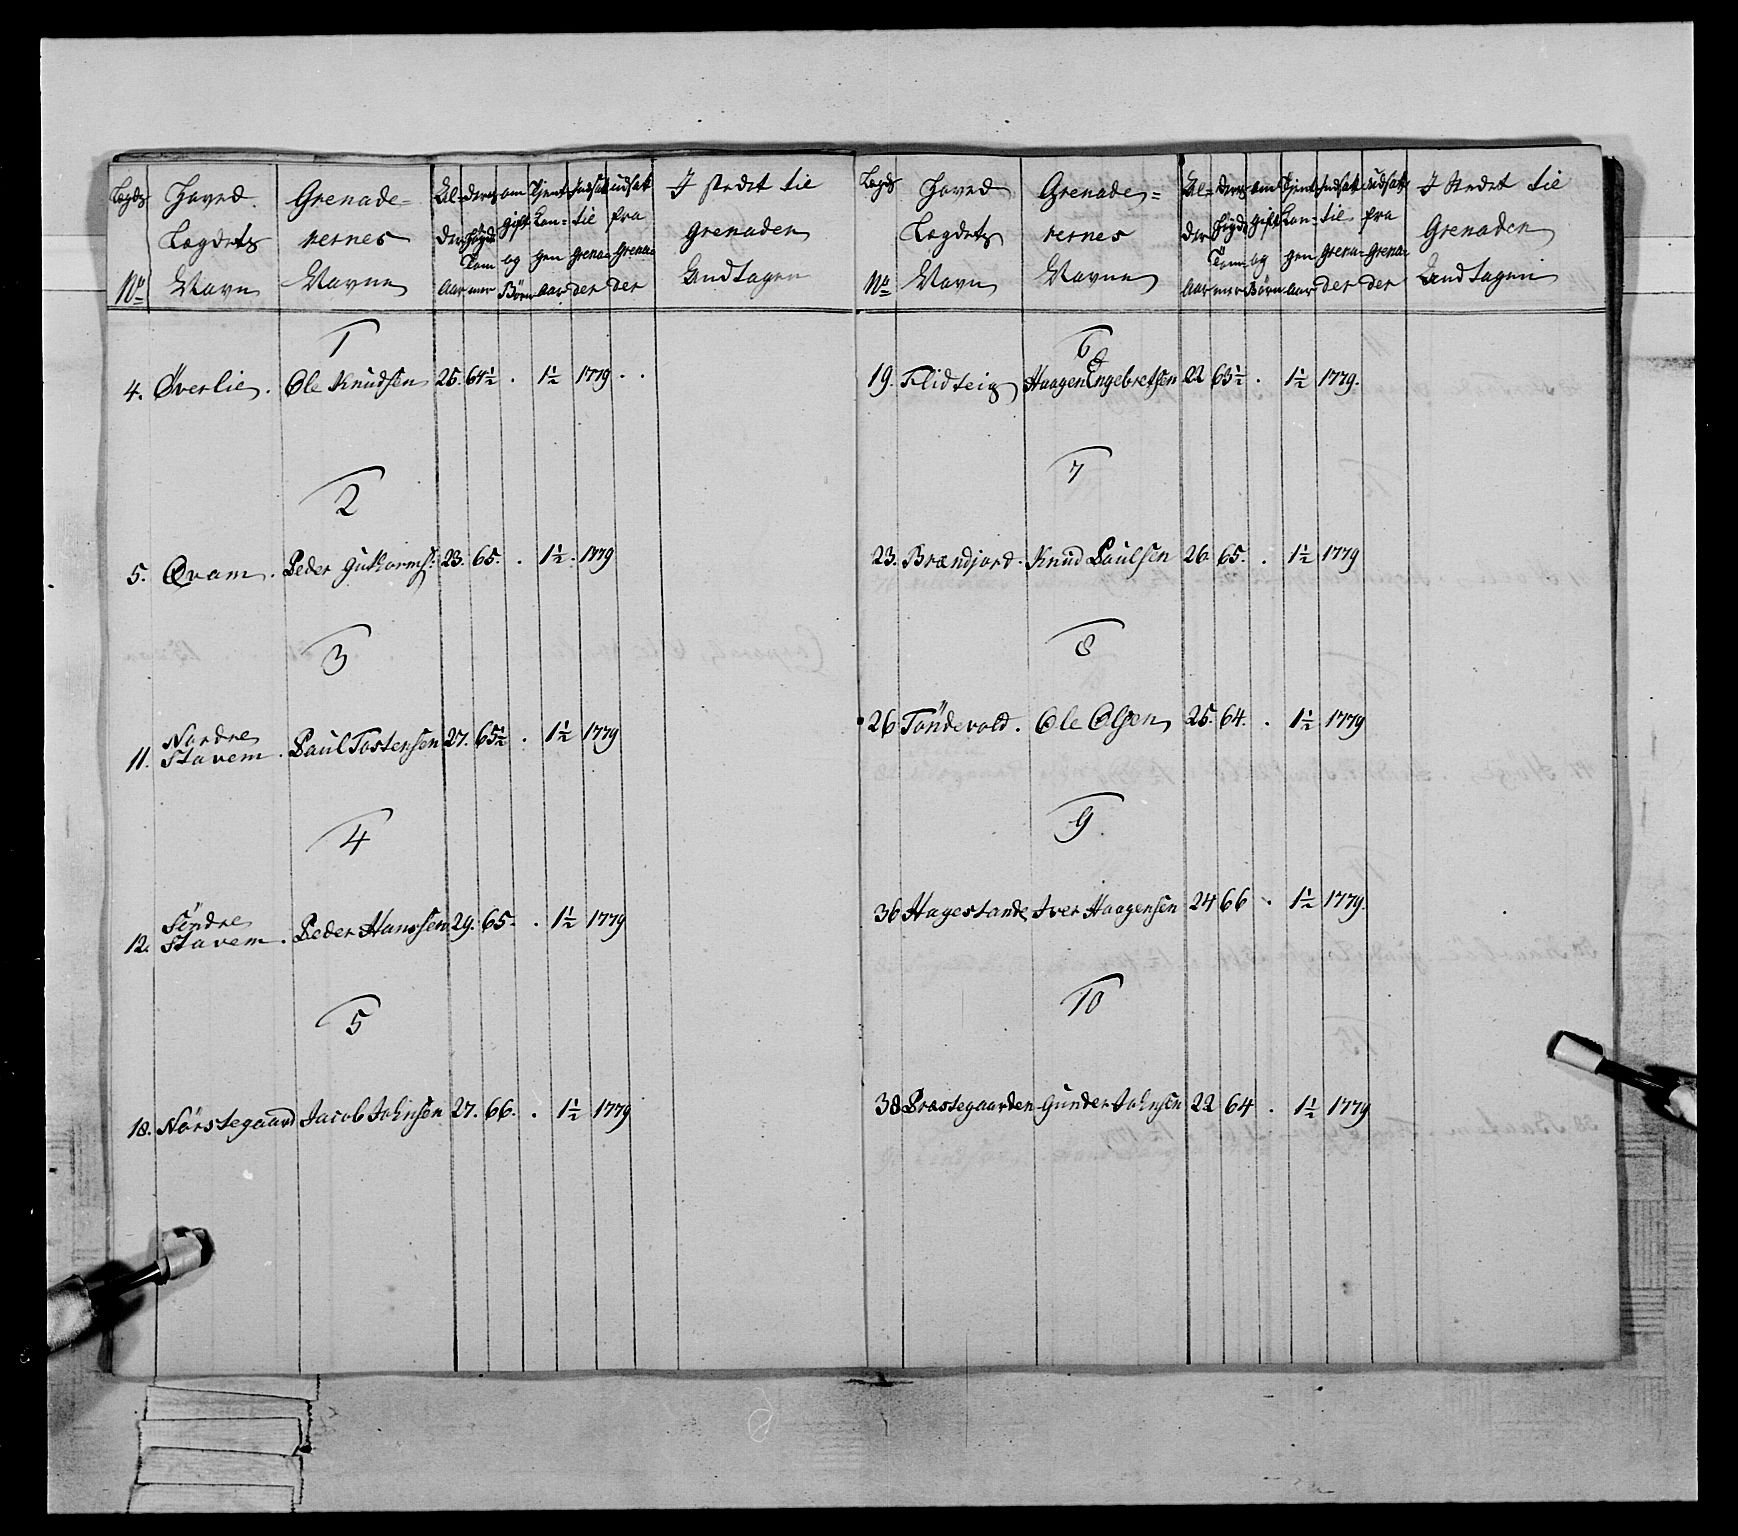 Lægds No Hoved Lægdets Navn Grenade= rernes Navne Al= der Aar deres Høyde Tom= mer om gift og Børn Tjent Kon= gen Aar Indsat til Grena= der udsat fra Grena= der I stedet til Grenader Andtagen
1
4. Øverlie. Ole Knudsen 25. 64½ . 1½ 1779 . .
2
5. Qvam. Peder Guttormss: 23. 65. . 1½. 1779
3
11. Nordre Stavem. Paul Tostensen 27. 65½ . 1½ 1779
4
12. Söndre Stavem. Peder Hanssen 29. 65 . 1½ 1779
5
18. Nörstegaard Jacob Johnsen 27. 66. . 1½ 1779
Lægds No Hoved Lægdets Navn Grenade= rernes Navne Al= der Aar deres Høyde Tom= mer om gift og Børn Tjent Kon= gen Aar Indsat til Grena= der Udsat fra Grena= der I Stedet til Grenader Andtagen
6
19. Flidteig Haagen Engebretsen 22 63½ . 1½ 1779.
7
23. Brændjord. Knud Paulsen 26. 65. . 1½ 1779
8
26 Töndevold. Ole Olsen 25. 64. . 1½ 1779
9
36 Hagestande Iver Haagensen 24 66 . 1½ 1779.
10
38 Præstegaarden Gunder Johnsen 22 64 . 1½ 1779